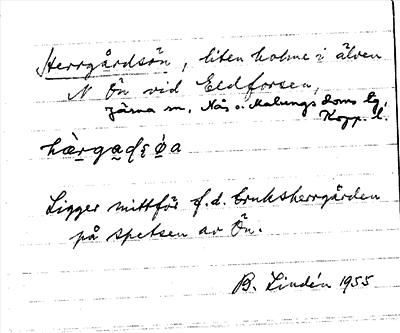 Herrgårdsön, liten holme i älven
N Ön vid Eldforsen,
Järna sn, Nås o. Malungs doms. tg,
Kopp. l.
Ligger mittför f.d. bruksherrgården
på spetsen av Ön.
B. Lindén 1955